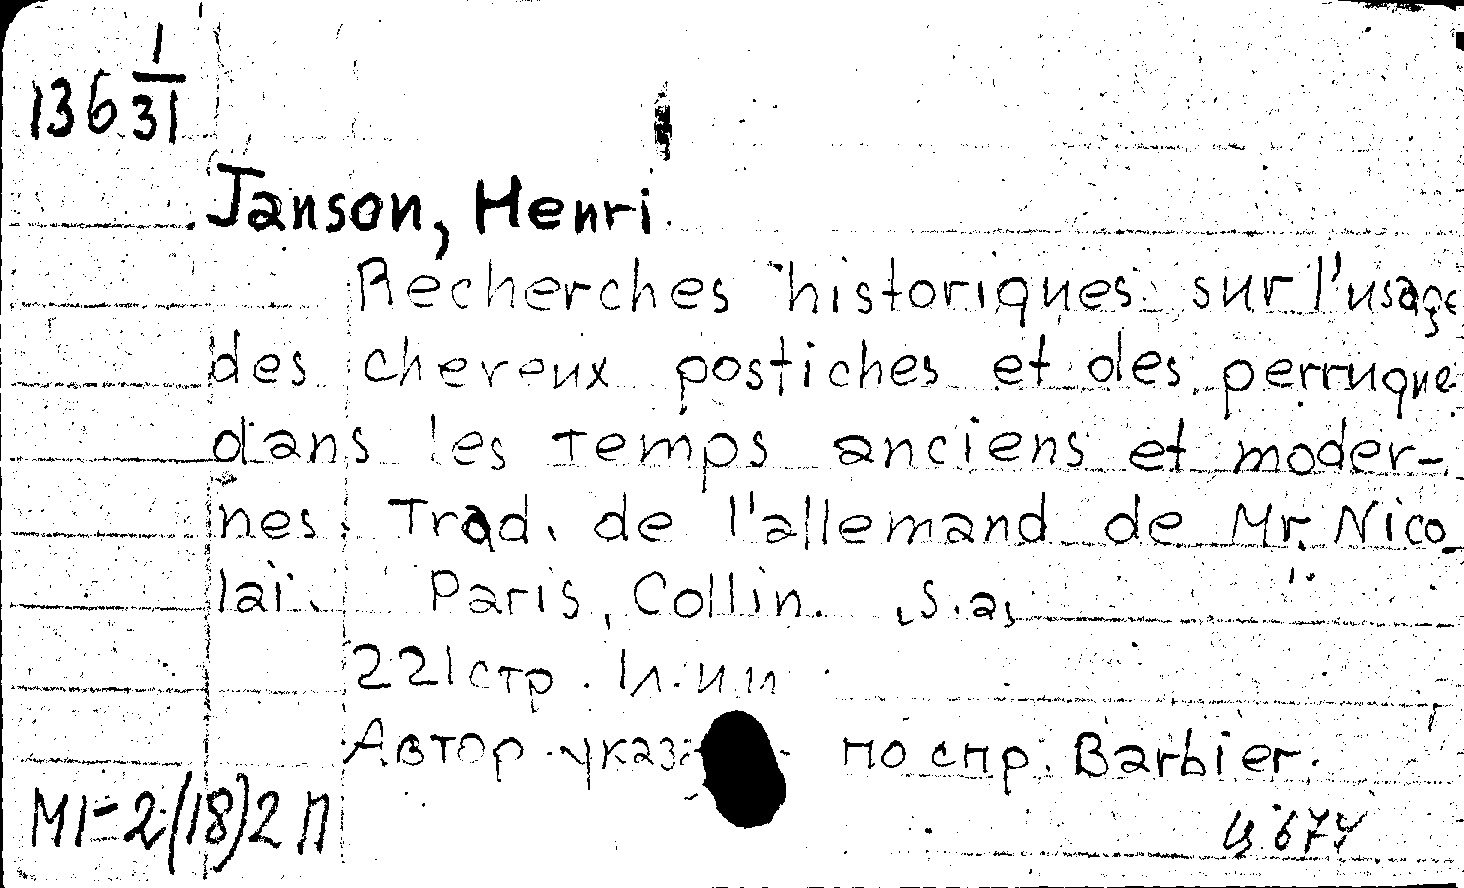 136 1/31
Janson, Henri.
Recherches historiques sur l'usage
des cheveux postiches et des perruque
dans les temps anciens et moder-
nes. Trad. de l'allemand de Mr. Nico-
lai. Paris, Collin. s.a,
221 стр. 1 л. илл
Автор указ по спр. Barbier.
М1=2(18)2 П
674